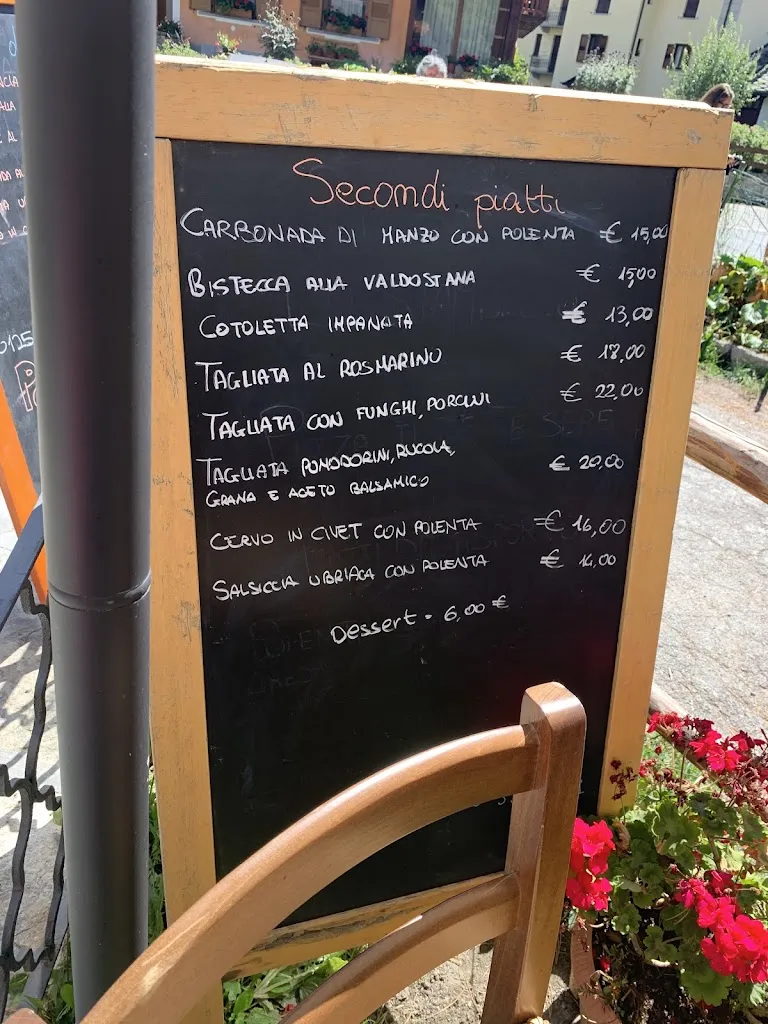 Secondi piatti
CARBONADA DI MANZO CON POLENTA € 15,00
BISTECCA ALLA VALDOSTANA € 15,00
COTOLETTA IMPANATA € 13,00
TAGLIATA AL ROSMARINO € 18,00
TAGLIATA CON FUNGHI, PORCINI € 22,00
TAGLIATA POMODORINI, RUCOLA,
GRANA E ACETO BALSAMICO € 20,00
CERVO IN CIVET CON POLENTA € 16,00
SALSICCIA UBRIACA CON POLENTA € 14,00
Dessert • 6,00 €